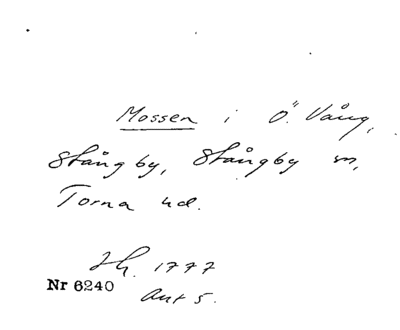 Mossen i Ö. Vång,
Stångby, Stångby sn,
Torna hd.
Jh. 1777
Nr 6240
Akt 5.